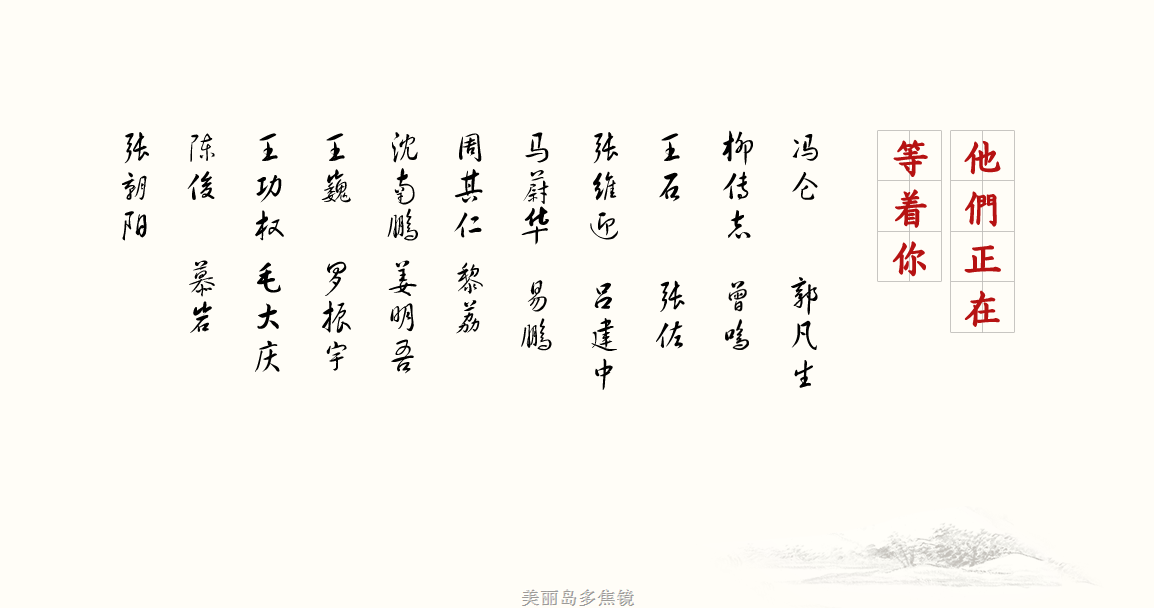 他們正在
等着你
冯仑 郭凡生
柳传志 曾鸣
王石 张佐
张维迎 吕建中
马蔚华 易鹏
周其仁 黎荔
沈南鹏 姜明吾
王巍 罗振宇
王功权 毛大庆
陈俊 慕岩
张朝阳
美丽岛多焦镜